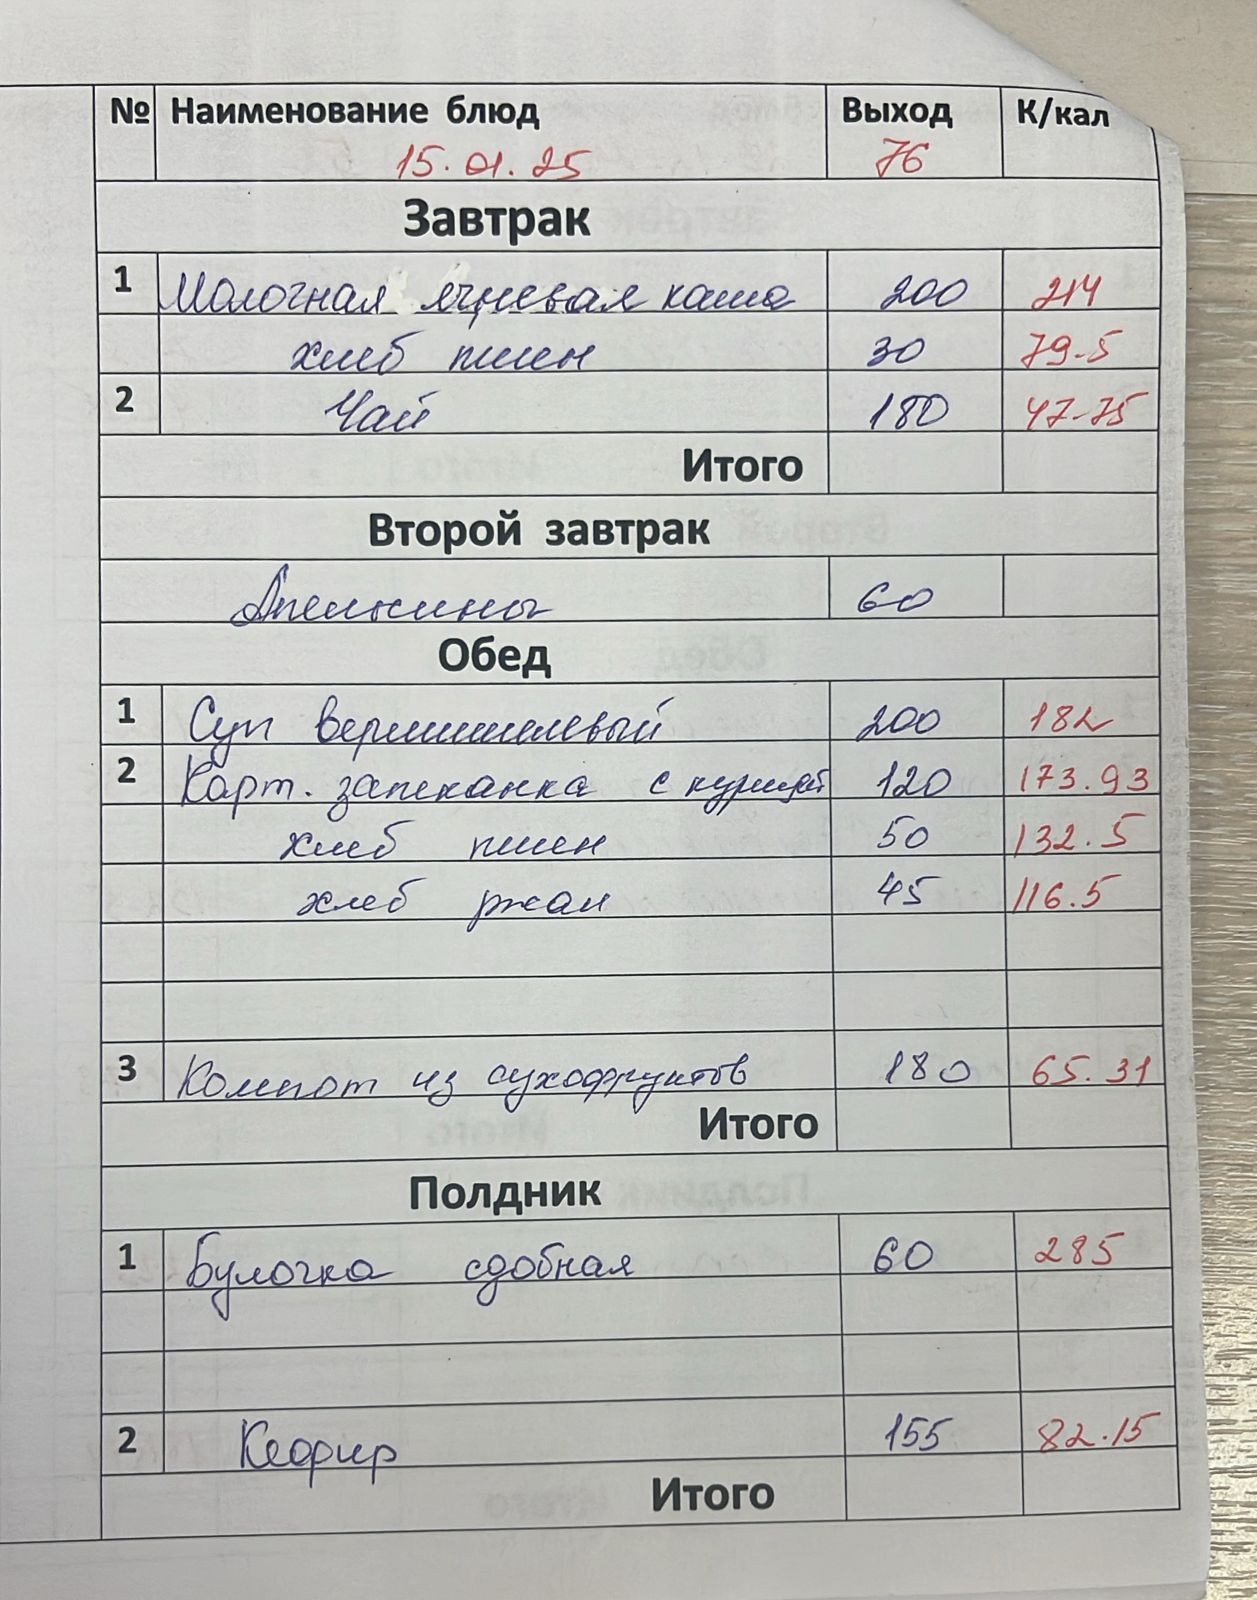 № Наименование блюд Выход К/кал
15.01.25 76
Завтрак
1 Молочная ячневая каша 200 214
хлеб пшен 30 79-5
2 Чай 180 47-75
Итого
Второй завтрак
Апельсины 60
Обед
1 Суп вермишелевый 200 182
2 Карт. запеканка с курицей 120 173.93
хлеб пшен 50 132.5
хлеб ржан 45 116.5
3 Компот из сухофруктов 180 65.31
Итого
Полдник
1 Булочка сдобная 60 285
2 Кефир 155 82.15
Итого